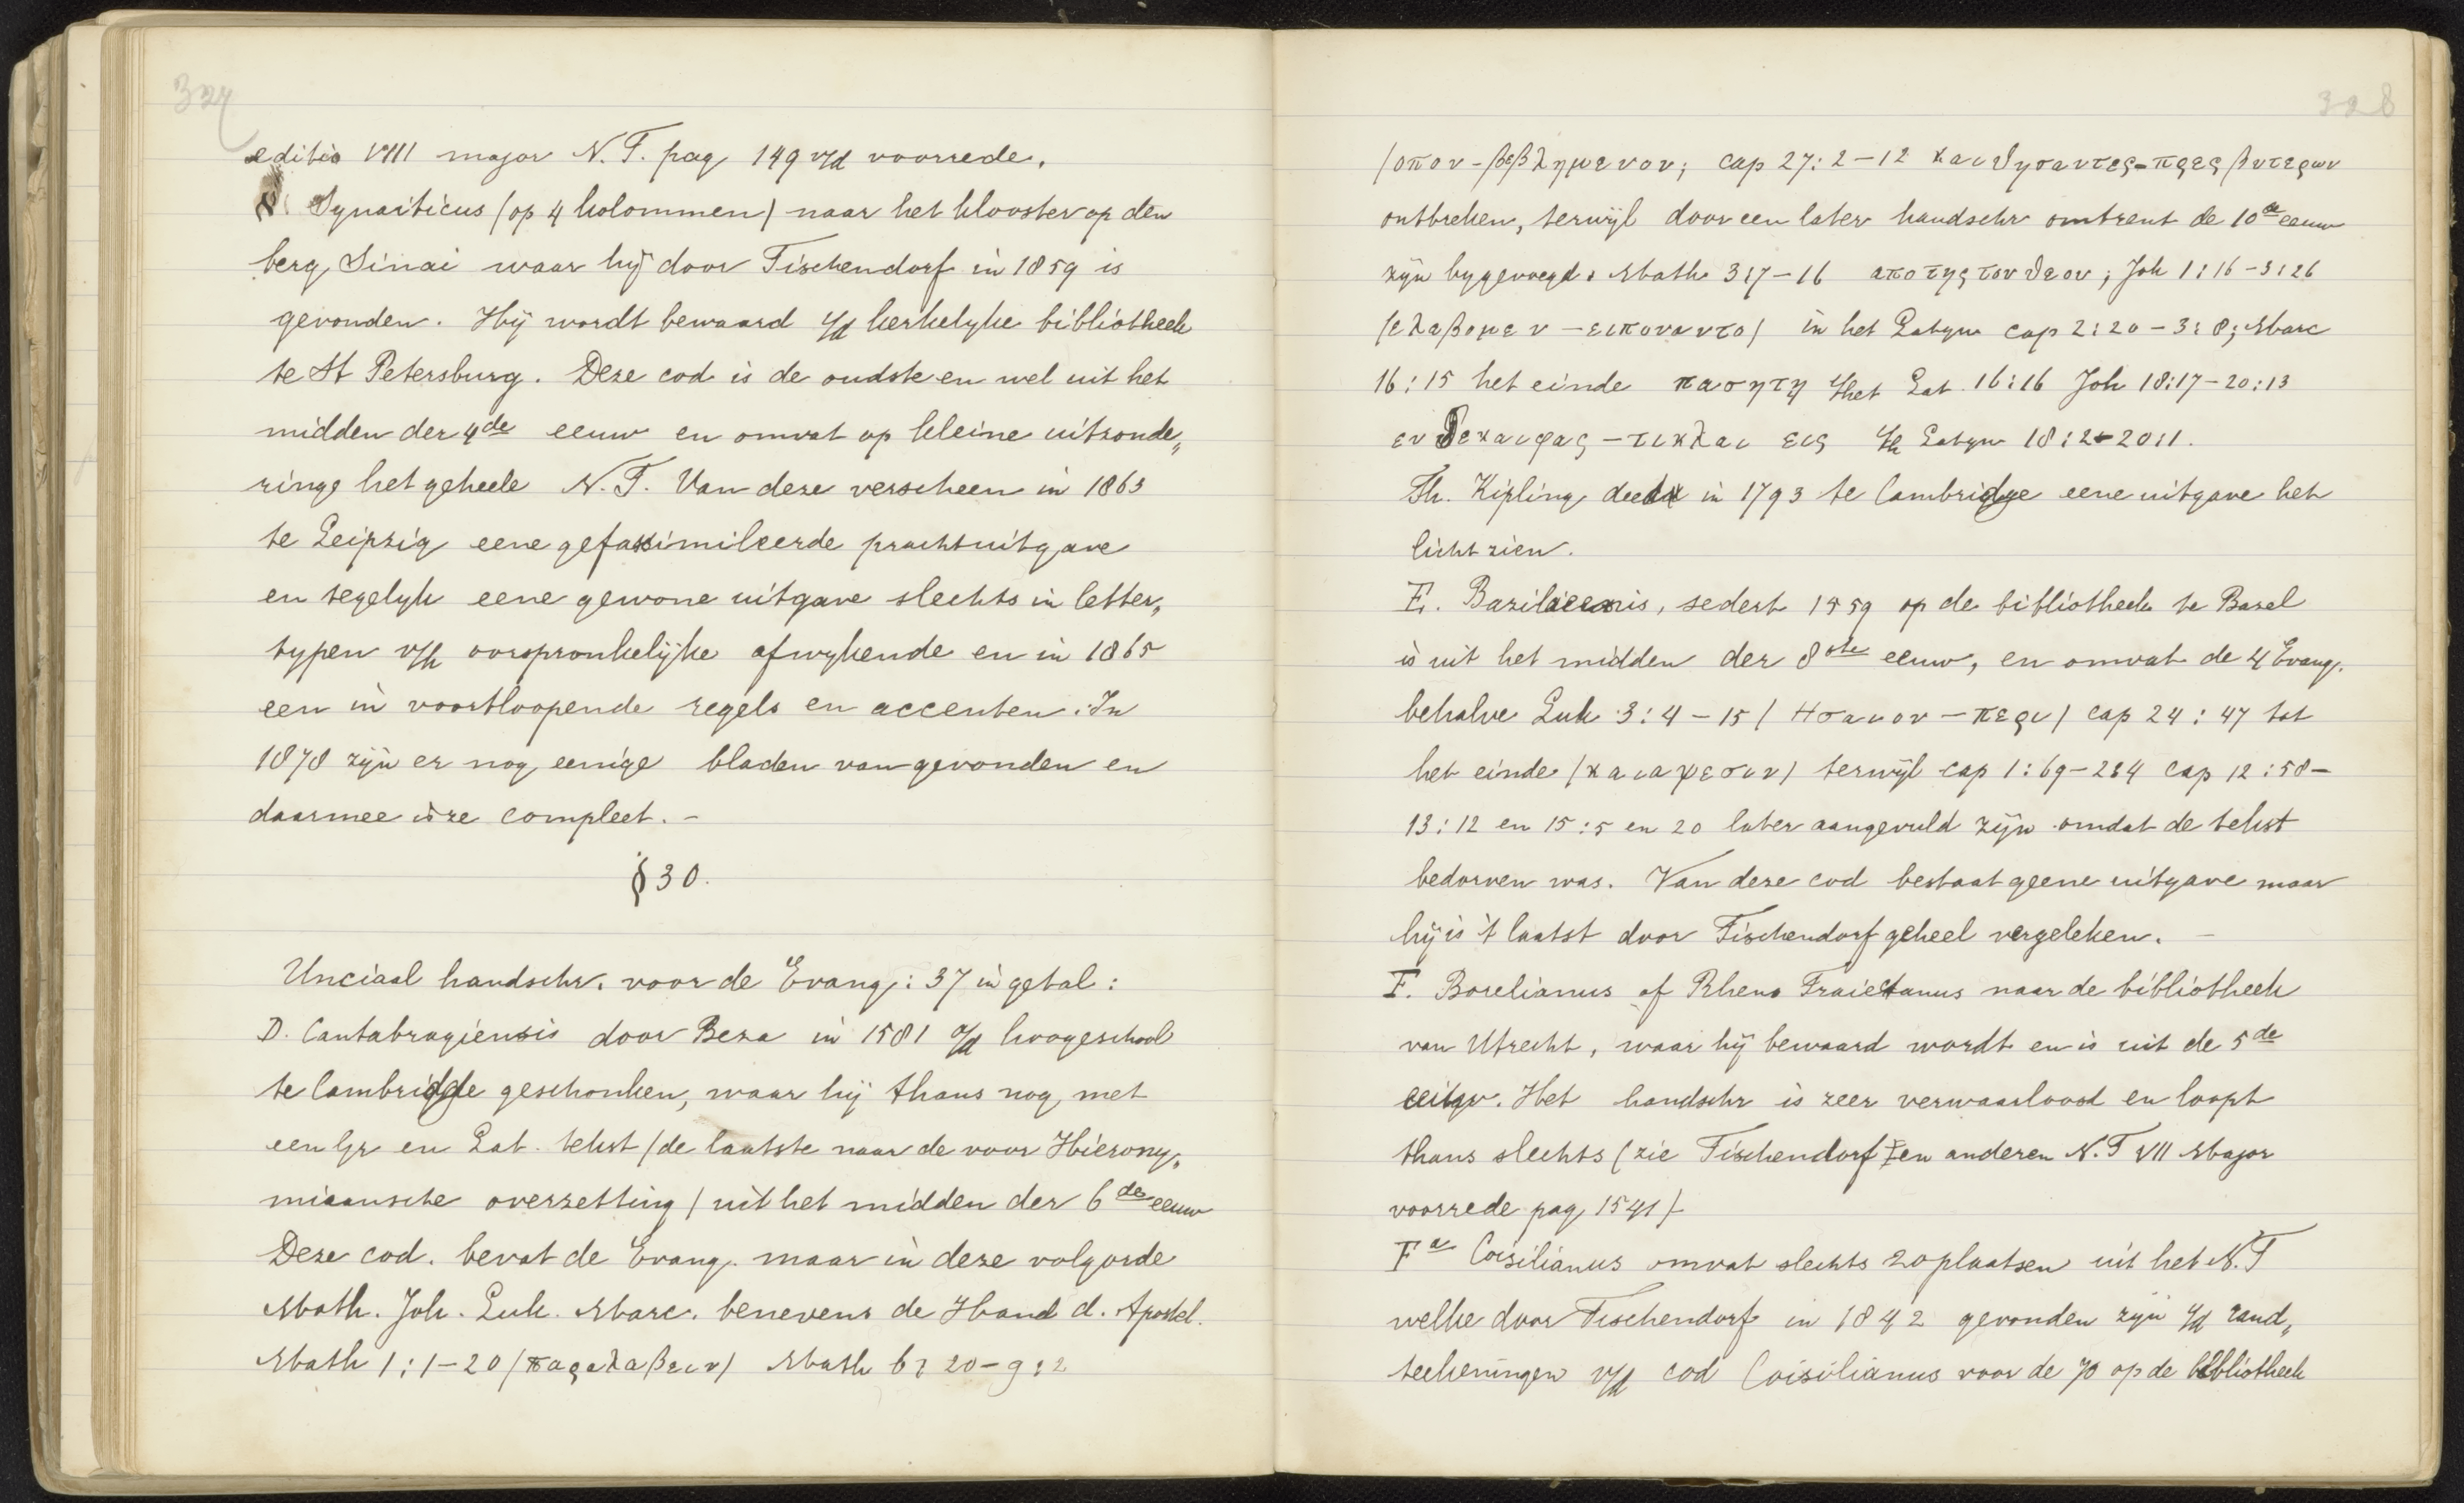 327
editio VIII major N.T. pag 149 v/d voorrede.
א. Synaiticus (op 4 kolommen) naar het klooster op den
berg Sinai waar hij door Tischendorf in 1859 is
gevonden. Hij wordt bewaard i/d kerkelyke bibliotheek
te St Petersburg. Deze cod is de oudste en wel uit het
midden der 4de eeuw en omvat op kleine uitzonde„
ringe het geheele N.T. Van deze verscheen in 1863
te Leipzig eene gefaksimileerde prachtuitgave
en tegelyk eene gewone uitgave slechts in letter„
typen v/h oorspronkelijke afwykende en in 1865
een in voortloopende regels en accenten. In
1878 zijn er nog eenige bladen van gevonden en
daarmee is ze compleet. –
§ 30.
Unciaal handschr. voor de Evang: 37 in getal:
D. Cantabragiensis door Beza in 1581 a/d hoogeschool
te Cambridge geschonken, waar hij thans nog met
een Gr en Lat. tekst (de laatste naar de voor Hierony„
miaansche overzetting) uit het midden der 6de eeuw
Deze cod. bevat de Evang. maar in deze volgorde
Math. Joh. Luk. Marc. benevens de Hand d. Apostel.
Math 1:1–20 (παραλαβειν) Math 6: 20–9:2
328
(οπου–βεβλημενον; cap 27:2–12 και δησαντες–πρεσβυτερων
ontbreken, terwijl door een later handschr omtrent de 10de eeuw
zijn bygevoegd: Math 3:7–16 απο της του θεου; Joh 1:16–3:26
(ελαβομεν–ειπον αυτο) in het Latyn cap 2:20–3:8; Marc
16:15 het einde παση τη i/het Lat. 16:16 Joh 18:17–20:13
εν δε καιφας–τι κλαιεις i/h Latyn 18:2–20:1.
Th. Kipling deed in 1793 te Cambridge eene uitgave het
licht zien.
E. Baziliensis, sedert 1559 op de bibliotheek te Basel
is uit het midden der 8ste eeuw, en omvat de 4 Evang.
behalve Luk 3:4–15 (Ησαιου–περι) cap 24:47 tot
het einde (και αφεσιν) terwijl cap 1:69–2:4 cap 12:58–
13:12 en 15:5 en 20 later aangevuld zijn omdat de tekst
bedorven was. Van deze cod bestaat geene uitgave maar
hij is 't laatst door Tischendorf geheel vergeleken. –
F. Borelianus of Rheno Traiectanus naar de bibliotheek
van Utrecht, waar hij bewaard wordt en is uit de 5de
eeuw. Het handschr is zeer verwaarloosd en loopt
thans slechts (zie Tischendorf en anderen N.T VII Major
voorrede pag 1541)
Fa Coisilianus omvat slechts 20 plaatsen uit het N.T
welke door Tischendorf in 1842 gevonden zijn i/d rand„
teekeningen v/d cod Coisilianus voor de 70 op de bibliotheek